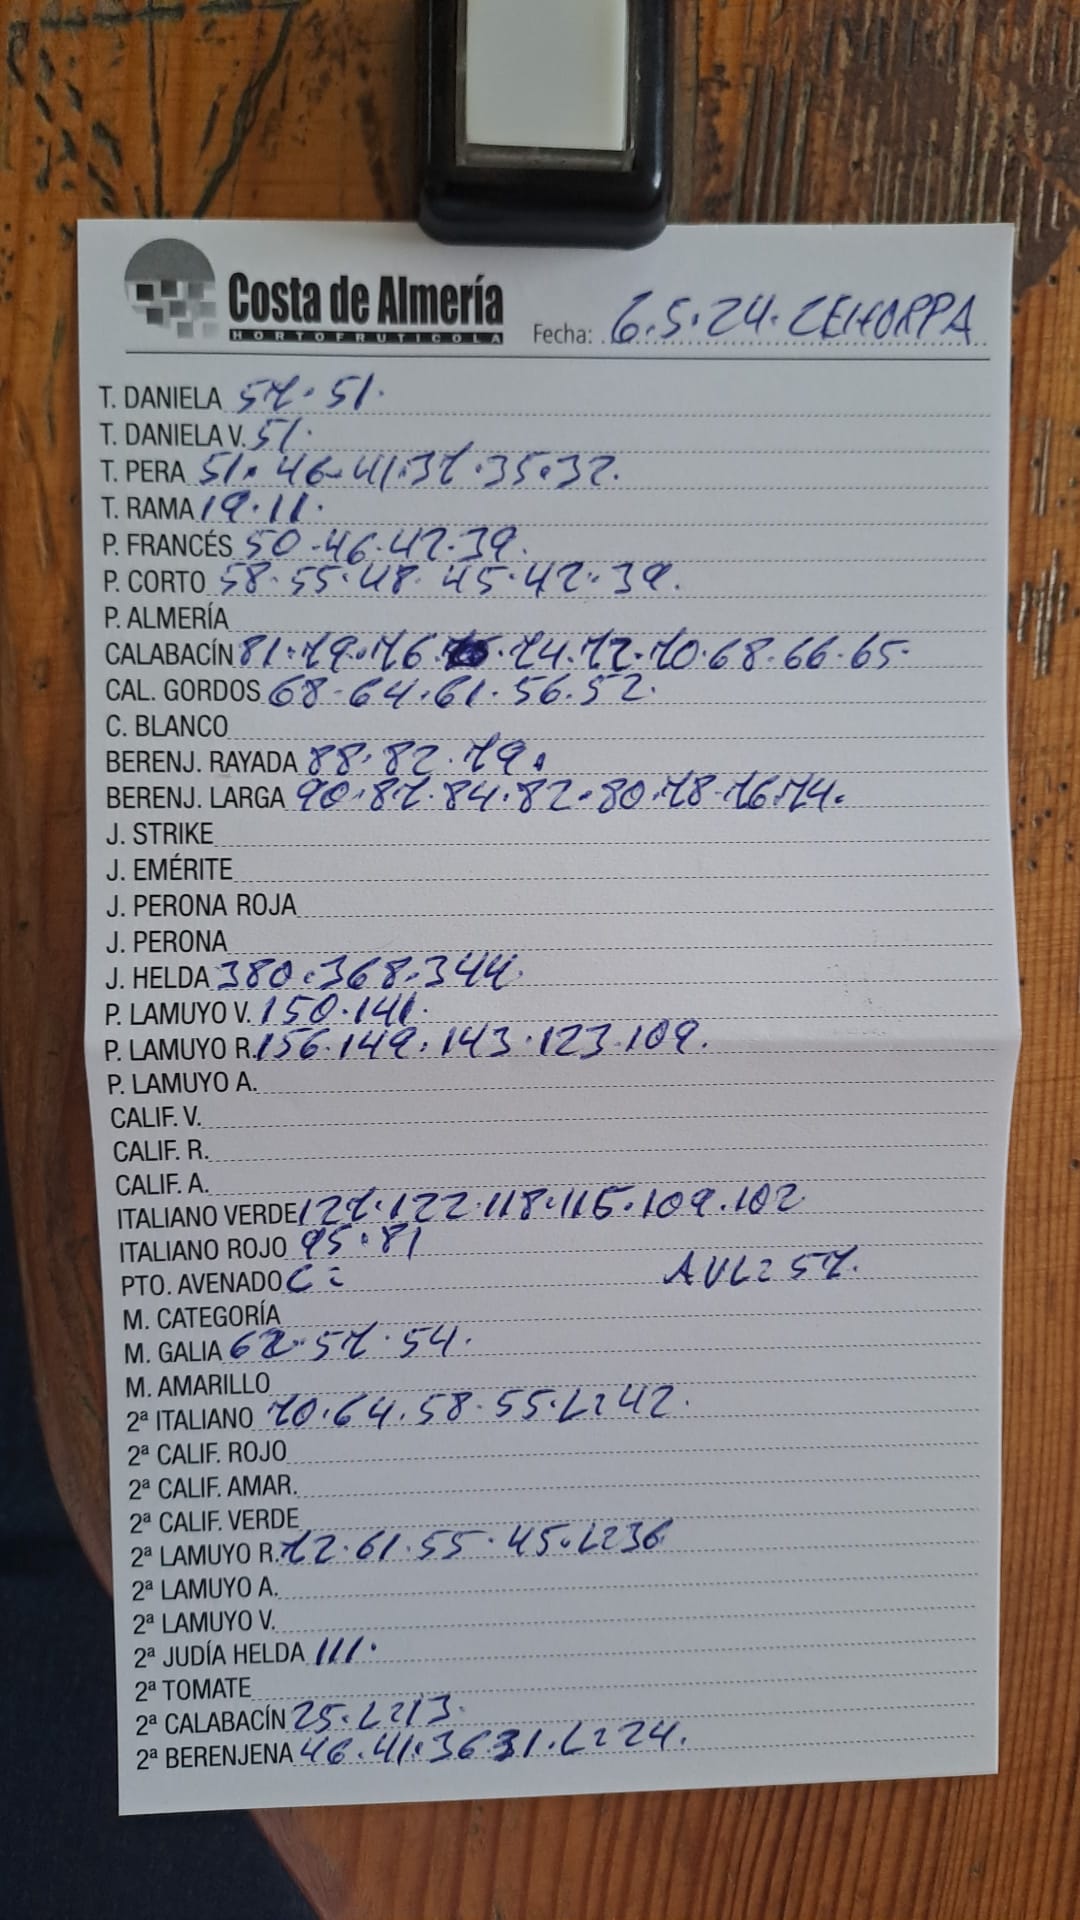 Costa de Almería
HORTOFRUTICOLA
Fecha: 6.5.24. CEHORPA
T. DANIELA 57.51.
T. DANIELA V. 51.
T. PERA 51.46.41.37.35.32.
T. RAMA 19.11.
P. FRANCÉS 50.46.42.39.
P. CORTO 58.55.48.45.42.39.
P. ALMERÍA
CALABACÍN 81.79.76.75.74.72.70.68.66.65.
CAL. GORDOS 68.64.61.56.52.
C. BLANCO
BERENJ. RAYADA 88.82.79.
BERENJ. LARGA 90.87.84.82.80.78.76.74.
J. STRIKE
J. EMÉRITE
J. PERONA ROJA
J. PERONA
J. HELDA 380.368.344.
P. LAMUYO V. 150.141.
P. LAMUYO R. 156.149.143.123.109.
P. LAMUYO A.
CALIF. V.
CALIF. R.
CALIF. A.
ITALIANO VERDE 127.122.118.115.109.102
ITALIANO ROJO 95.81
PTO. AVENADO C= AVL= 57.
M. CATEGORÍA
M. GALIA 62.57.54.
M. AMARILLO
2ª ITALIANO 70.64.58.55.L=42.
2ª CALIF. ROJO
2ª CALIF. AMAR.
2ª CALIF. VERDE
2ª LAMUYO R. 72.61.55.45.L=36
2ª LAMUYO A.
2ª LAMUYO V.
2ª JUDÍA HELDA 111.
2ª TOMATE
2ª CALABACÍN 25.L=13.
2ª BERENJENA 46.41.36.31.L=24.